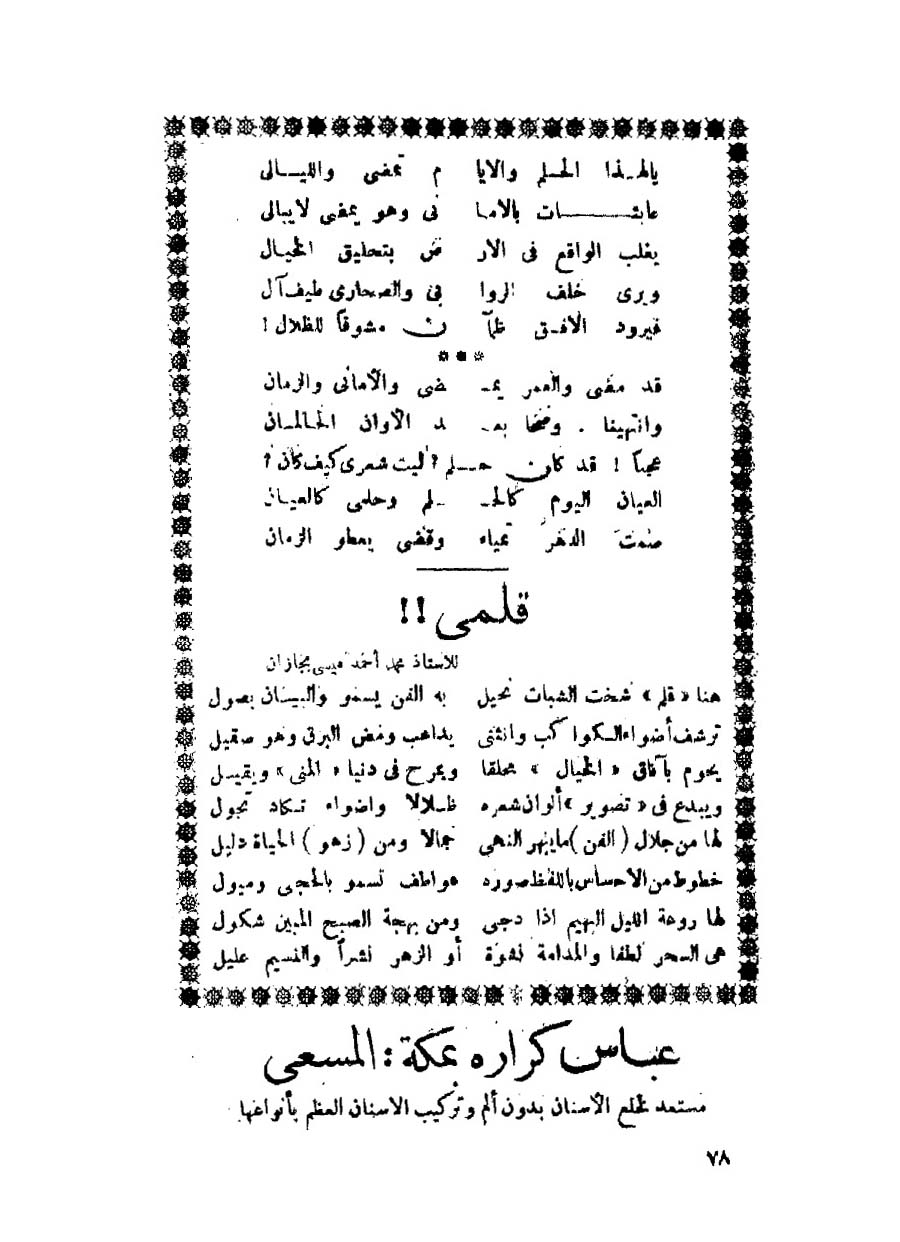 يالهـذا الحـلم والايا م تمضى والليـالى
عابثـــات بالاما نى وهو يمضى لايبالى
يغلب الواقع فى الار ض بتحليق الخيـال
ويرى خلف الروا بى والصحارى طيف آل
فيرود الافـق ظمآ ن مشوقاً للظلال !
* * *
قد مضى والعمر يمـ ـضى والأمانى والزمان
وانتهينا . وضحا بعـ ـد الأوان الحالمـان
عجباً ! قد كان حــلم ؟ ليت شعرى كيف كان ؟
العيان اليوم كالحـ ـلم وحلمى كالعيـان
صمتَ الدهرُ وقضى الزمان
قلمى !!
للاستاذ محمد أحمد عيسى بجازان
هنا « قلم » شخت الشبات نحيل به الفن يسمو والبيسان بصول
ترشف أضواءالكواكب وانثنى يداعب ومض البرق وهو صقيل
يحوم بآفاق « الخيال » محلقا ويمرح فى دنيا « المنى » ويقيسل
ويبدع فى « تصوير » ألوان شعره ظـلالا واضواء تـكاد تجول
لها من جلال ( الفن ) ماينهر النهى جمالا ومن ( زهو ) الحياة دليل
خطوط من الاحساس باللفظ صوره عواطف تسمو بالحجى وميول
لها روعة الليل البهيم اذا دجى ومن بهجة الصبح المبين شكول
هى السحر لطفا والمدامة نشوة أو الزهر نشراً والنسيم عليل
عباس كراره بمكة : المسعى
مستعد لخلع الأسنان بدون ألم وتركيب الاسنان العظم بأنواعها
٧٨